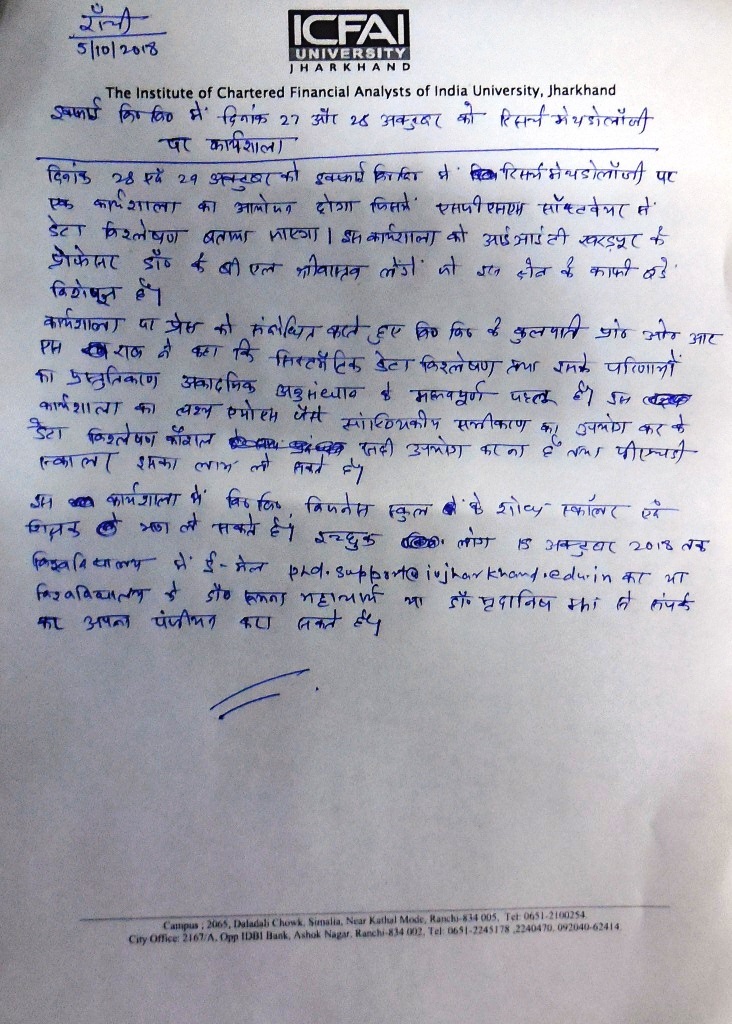 राँची
5/10/2018
ICFAI
UNIVERSITY
JHARKHAND
The Institute of Chartered Financial Analysts of India University, Jharkhand
इक्फाई वि० वि० में दिनांक 27 और 28 अक्टुबर को रिसर्च मेथडोलॉजी
पर कार्यशाला
दिनांक 28 एवं 29 अक्टुबर को इक्फाई वि० वि० में रिसर्च मेथडोलॉजी पर
एक कार्यशाला का आयोजन होगा जिसमें एसपीएसएस सॉफ्टवेयर से
डेटा विश्लेषण बताया जाएगा। इस कार्यशाला को आई आई टी खरड़पुर के
प्रोफेसर डॉ० के बी एल श्रीवास्तव लेंगें जो इस क्षेत्र के काफी बड़े
विशेषज्ञ हैं।
कार्यशाला पर प्रेस को संबोधित करते हुए वि० वि० के कुलपति प्रो० ओ० आर
एस राव ने कहा कि सिस्टमैटिक डेटा विश्लेषण तथा इसके परिणामों
का प्रस्तुतिकरण अकादमिक अनुसंधान के महत्वपूर्ण पहलू हैं। इस
कार्यशाला का लक्ष्य जैसे सांख्यिकीय का उपयोग कर के
डेटा विश्लेषण कौशल सही उपयोग करना है तथा पीएचडी
स्कॉलर इसका लाभ ले सकते हैं।
इस कार्यशाला में वि० वि० बिजनेस स्कुल के शोध स्कॉलर एवं
शिक्षक भाग ले सकते हैं। इच्छुक लोग 15 अक्टुबर 2018 तक
विश्वविद्यालय में ई-मेल phd.support@iujharkhand.edu.in कर या
विश्वविद्यालय के डॉ० या डॉ० से संपर्क
कर अपना पंजीयन करा सकते हैं।
Campus : 2065, Daladali Chowk, Simalia, Near Kathal Mode, Ranchi-834 005, Tel: 0651-2100254.
City Office: 2167/A, Opp IDBI Bank, Ashok Nagar, Ranchi-834 002, Tel: 0651-2245178 ,2240470, 092040-62414